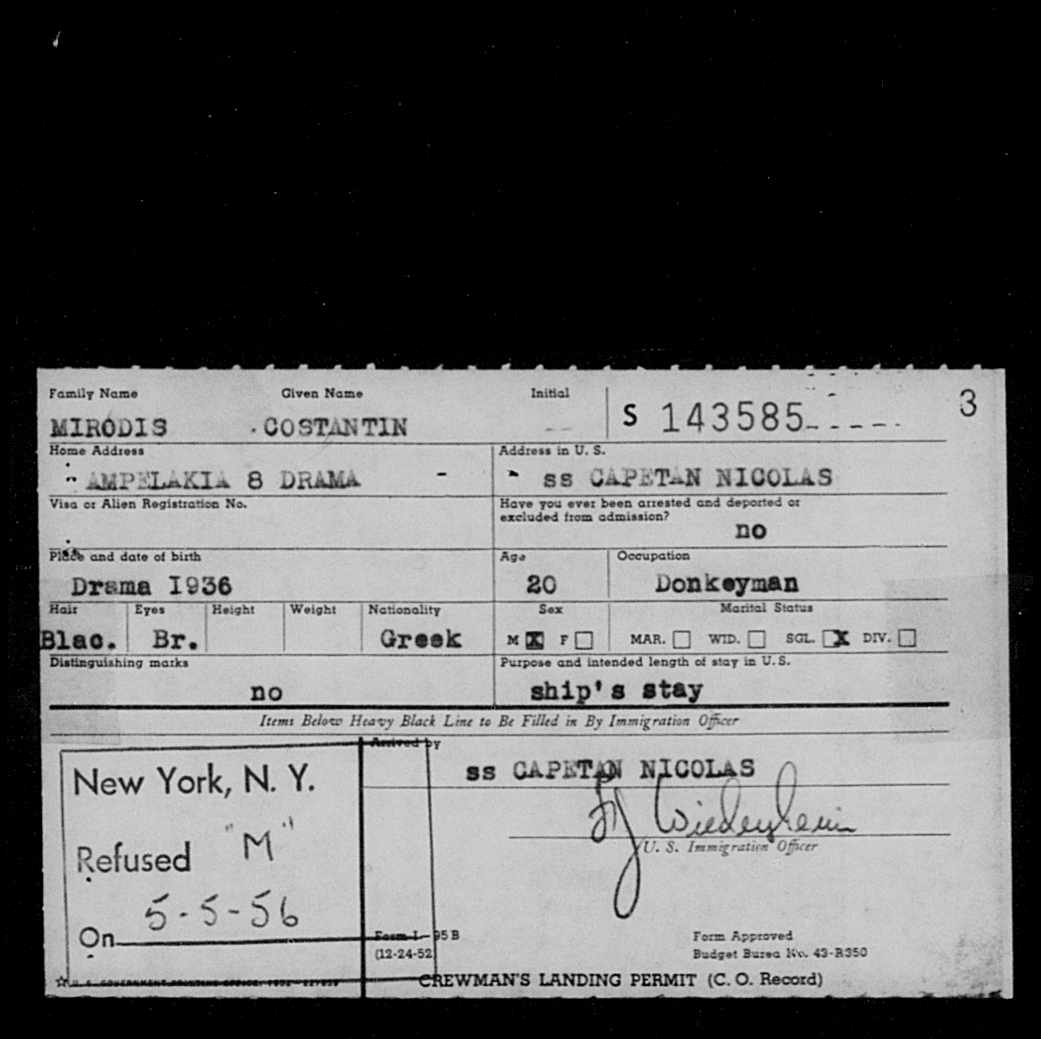 Family Name Given Name Initial
MIRODIS COSTANTIN -- S 143585 3
Home Address Address in U. S.
AMPELAKIA 8 DRAMA - ss CAPETAN NICOLAS
Visa or Alien Registration No. Have you ever been arrested and deported or
excluded from admission?
no
Place and date of birth Age Occupation
Drama I936 20 Donkeyman
Hair Eyes Height Weight Nationality Sex Marital Status
Blac. Br. Greek M X F MAR. WID. SGL. X DIV.
Distinguishing marks Purpose and intended length of stay in U.S.
no ship's stay
Items Below Heavy Black Line to Be Filled in By Immigration Officer
Arrived by
ss CAPETAN NICOLAS
New York, N. Y.
U. S. Immigration Officer
Refused "M"
On 5-5-56
Form I-95B
(12-24-52
Form Approved
Budget Bureau No. 43-R350
U. S. GOVERNMENT PRINTING OFFICE
CREWMAN'S LANDING PERMIT (C. O. Record)